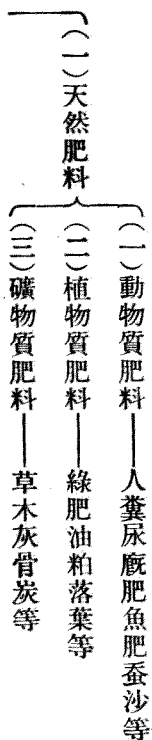 （一）天然肥料
（一）動物質肥料——人糞尿廐肥魚肥蚕沙等
（二）植物質肥料——綠肥油粕落葉等
（三）礦物質肥料——草木灰骨炭等